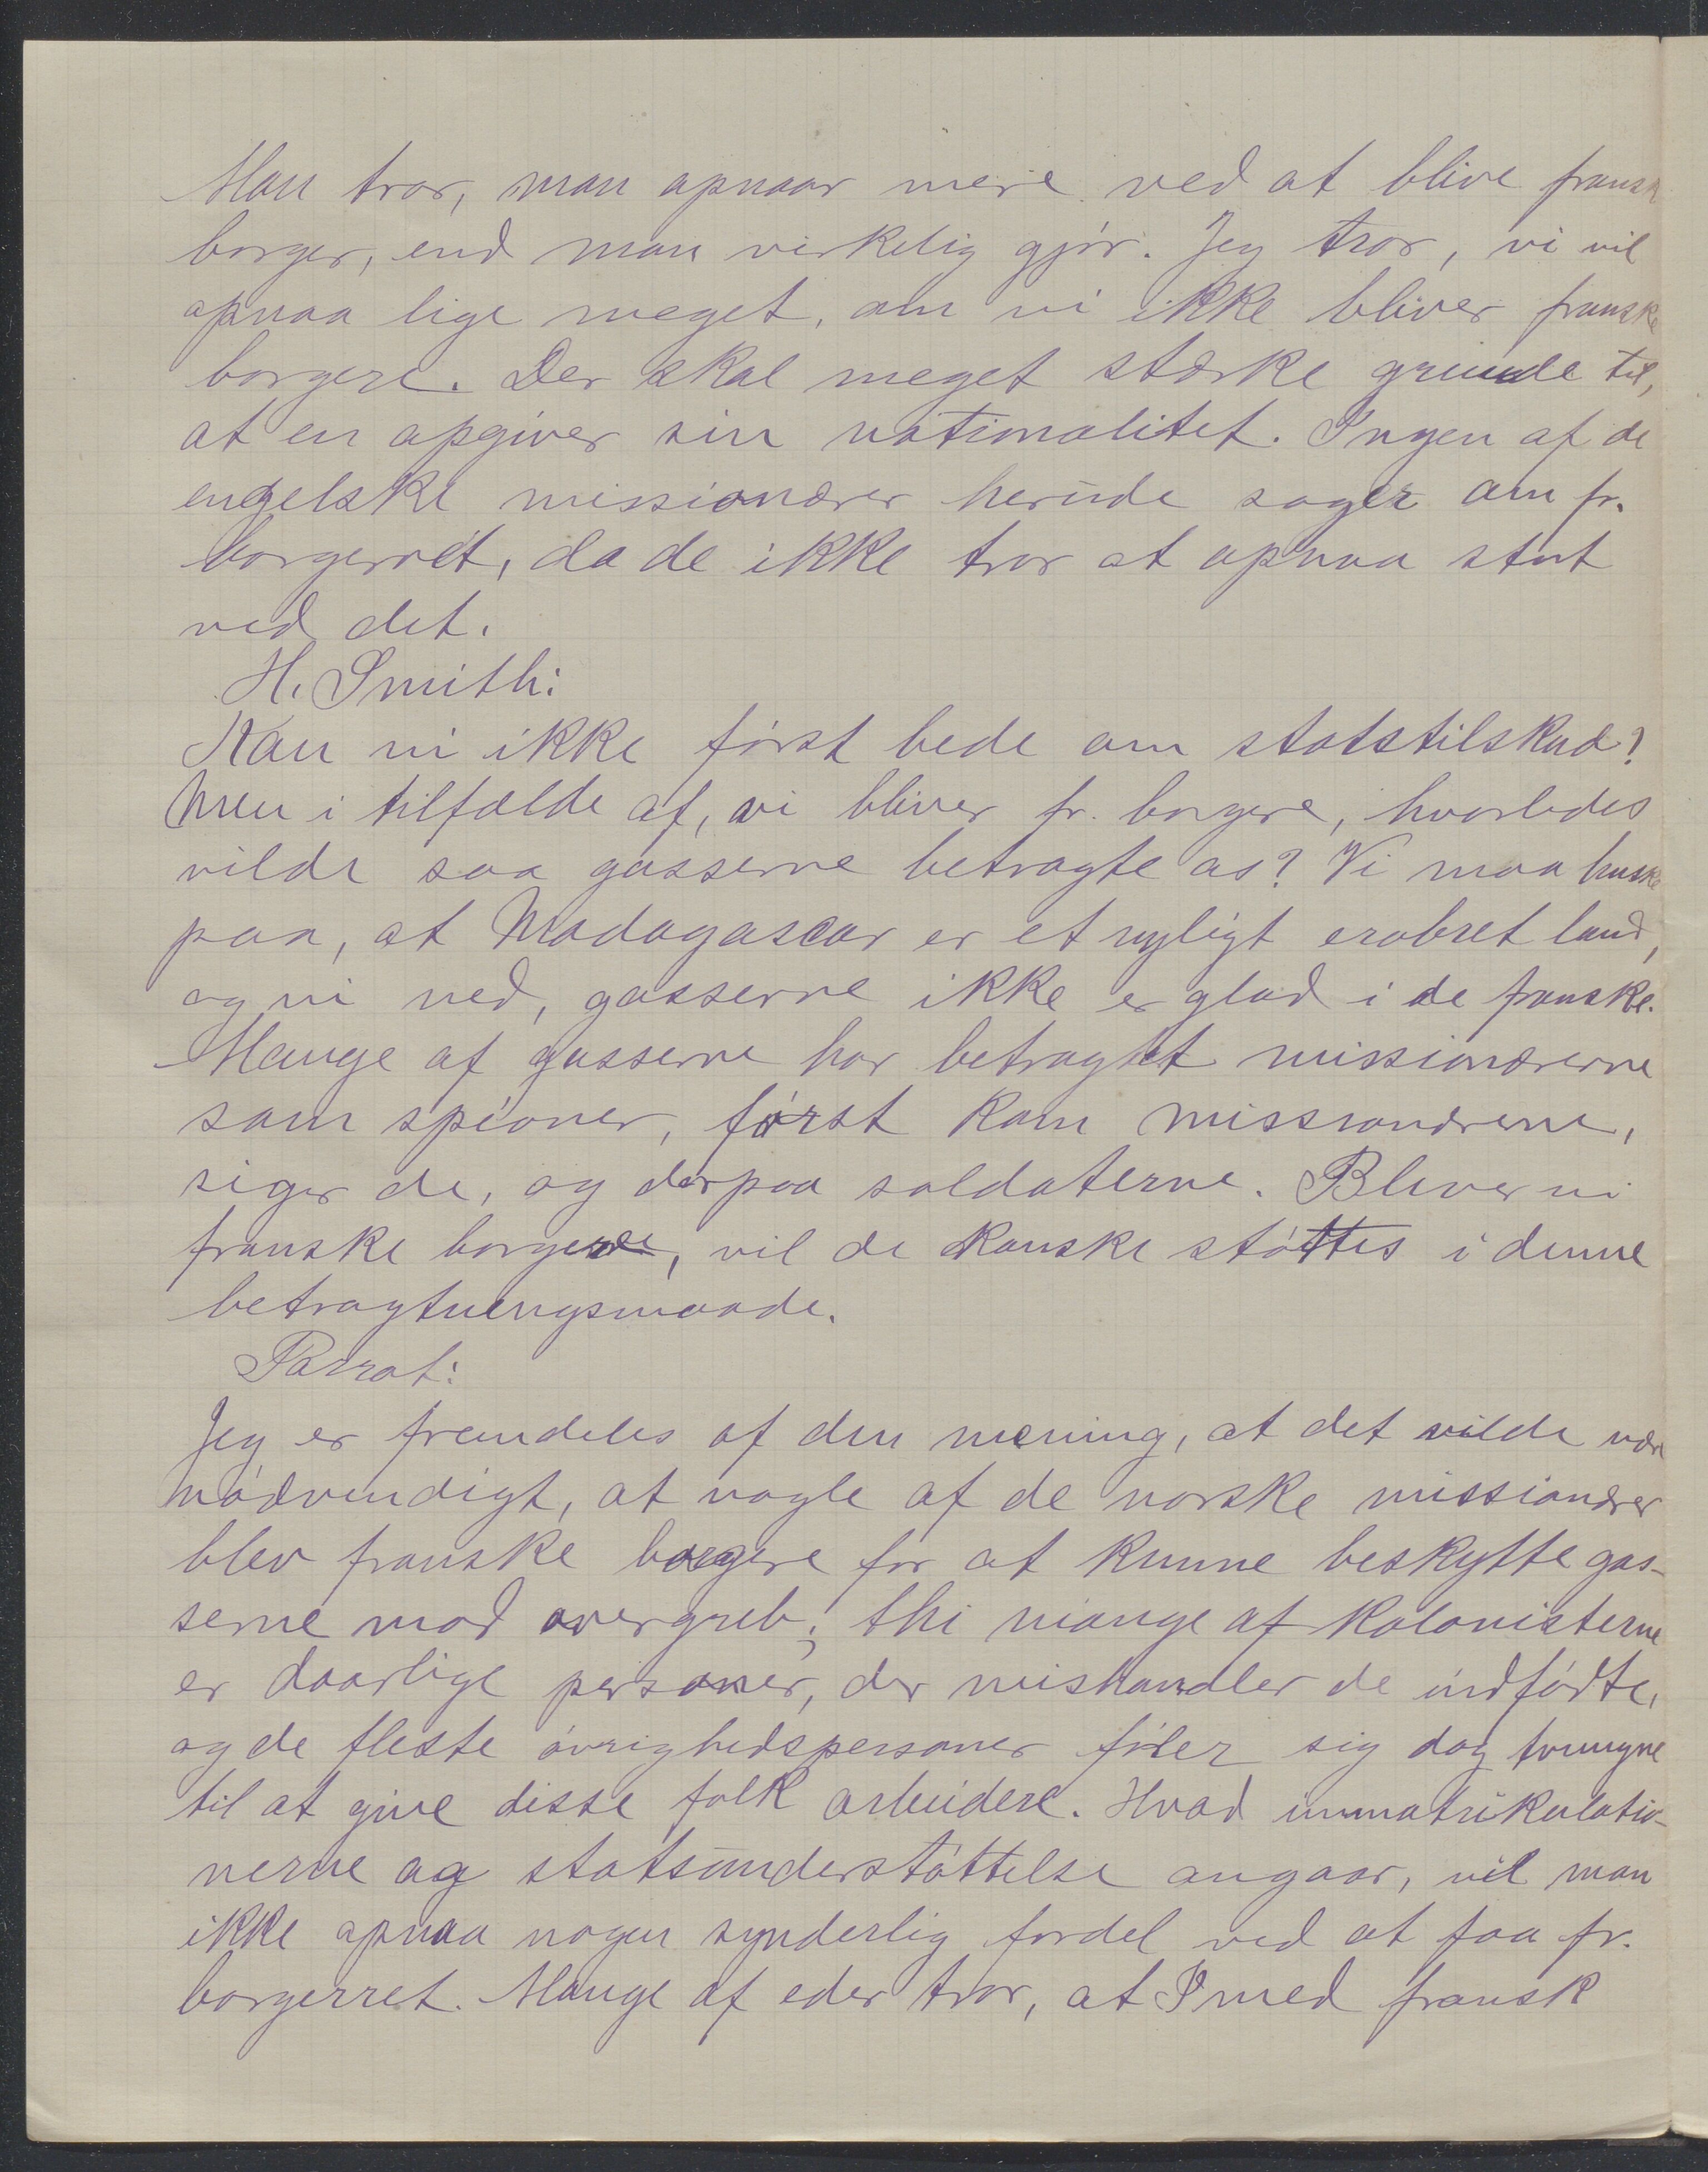 Man tror, man opnaar mere ved at blive fransk
borger, end man virkelig gjör. Jeg tror, vi vil
opnaa lige meget, om vi ikke bliver franske
borgere. Der skal meget stærke grunde til,
at en opgiver sin nationalitet. Ingen af de
engelske missionærer herude søger om fr.
borgerret, da de ikke tror at opnaa stort
ved det.
H. Smith:
Kan vi ikke först bede om statstilskud?
Men i tilfælde af, vi bliver fr. borgere, hvorledes
vilde saa gasserne betragte os? Vi maa huske
paa, at Madagascar er et nyligt erobret land,
og vi ved, gasserne ikke er glad i de franske.
Mange af gasserne har betragtet missionærerne
som spioner, först kom missionærerne,
siger de, og derpaa soldaterne. Bliver vi
franske borgere, vil de kanske stöttes i denne
betragtningsmaade.
Parrot:
Jeg er fremdeles af den mening, at det vilde være
nödvendigt, at nogle af de norske missionærer
blev franske borgere for at kunne beskytte gas-
serne mod overgreb; thi mange af kolonisterne
er daarlige personer, der mishandler de indfödte,
og de fleste övrighedspersoner föler sig dog tvungne
til at give disse folk arbeidere. Hvad immatrikulatio-
nerne og statsunderstöttelse angaar, vil man
ikke opnaa nogen synderlig fordel ved at faa fr.
borgerret. Mange af eder tror, at I med fransk